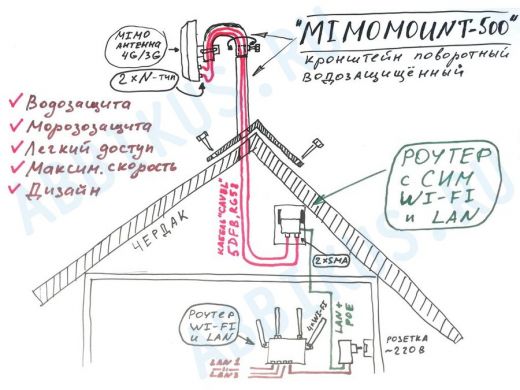 "MIMOMOUNT-500"
кронштейн поворотный
водозащищённый
MIMO
АНТЕННА
4G/3G
2×N-тип
Водозащита
Морозозащита
Легкий доступ
Максим. скорость
Дизайн
РОУТЕР
с СИМ
WI-FI
и LAN
ЧЕРДАК
КАБЕЛЬ "CAVEL"
5DFB, RG58
2×SMA
РОУТЕР
WI-FI
и LAN
4×WI-FI
LAN+
POE
РОЗЕТКА
~220В
LAN 1
LAN 3